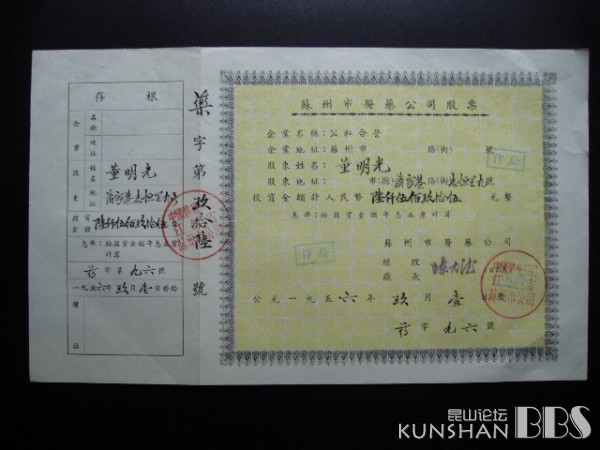 蘇州市醫藥公司股票
企業名稱：公私合營
企業地址：蘇州市 路(街) 號
股東姓名：董明光
市(縣) 路(街) 號
投資金額計人民幣 陸仟伍佰玖拾伍 元整
息率：按投資金額年息五厘計算
作廢
作廢
蘇州市醫藥公司
經理
廠長
公元一九五六年玖月壹日
药字九六號
藥字第玖拾陸號
存根
企業
名稱
地址
股東
姓名 董明光
地址
投資金額 陸仟伍佰玖拾伍
息率：按投資金額年息五厘
計算
药字第九六號
一九五六年玖月壹日
備註
昆山论坛
KUNSHAN BBS